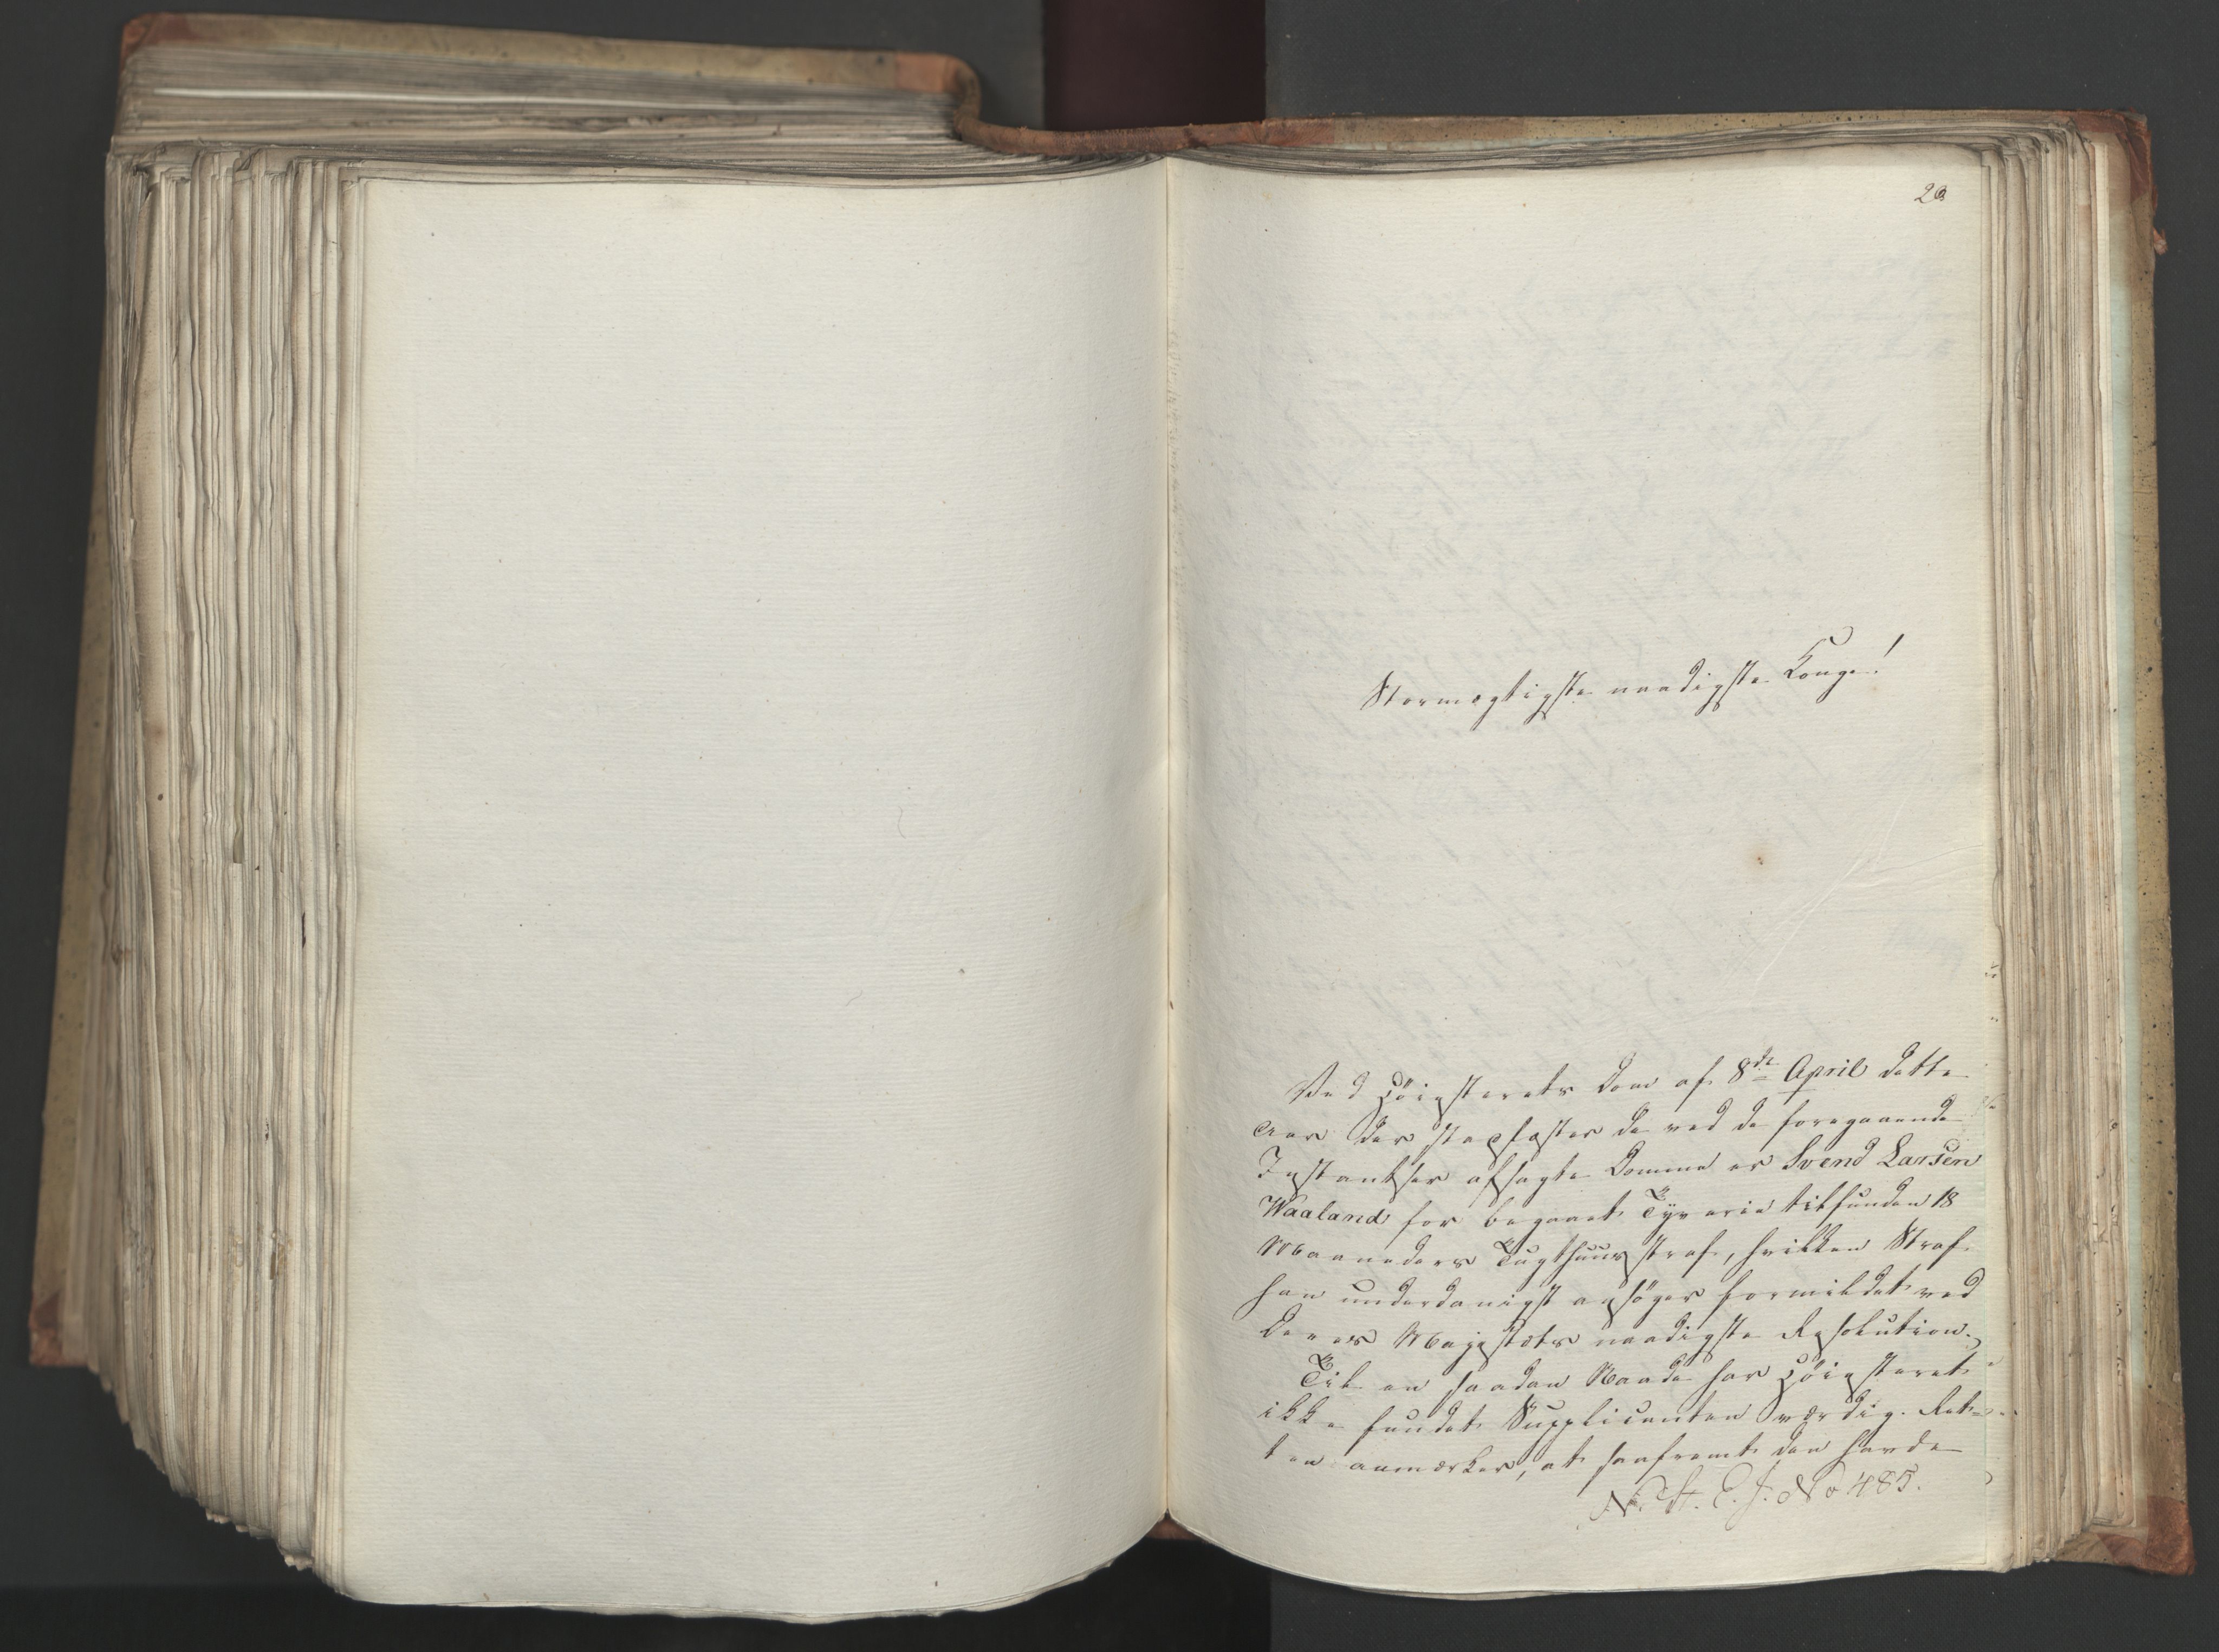 20
Stormægtigste naadigste Konge!
Ved Höiesterets Dom af 8de April dette
Aar der stadfæster de ved de foregaaende
Instantser afsagte Domme er Svend Larsen
Waaland for begaaet Tyverie tilfunden 18
Maaneders Tugthuusstraf, hvilken Straf
han underdanigst ansöger formildet ved
Deres Majestæts naadigste Resolution.
Til en saadan Naade har Höiesteret
ikke fundet Supplicanten værdig. Ret-
ten anmærker, at saafremt den havde
N. St. E. J. No 485.